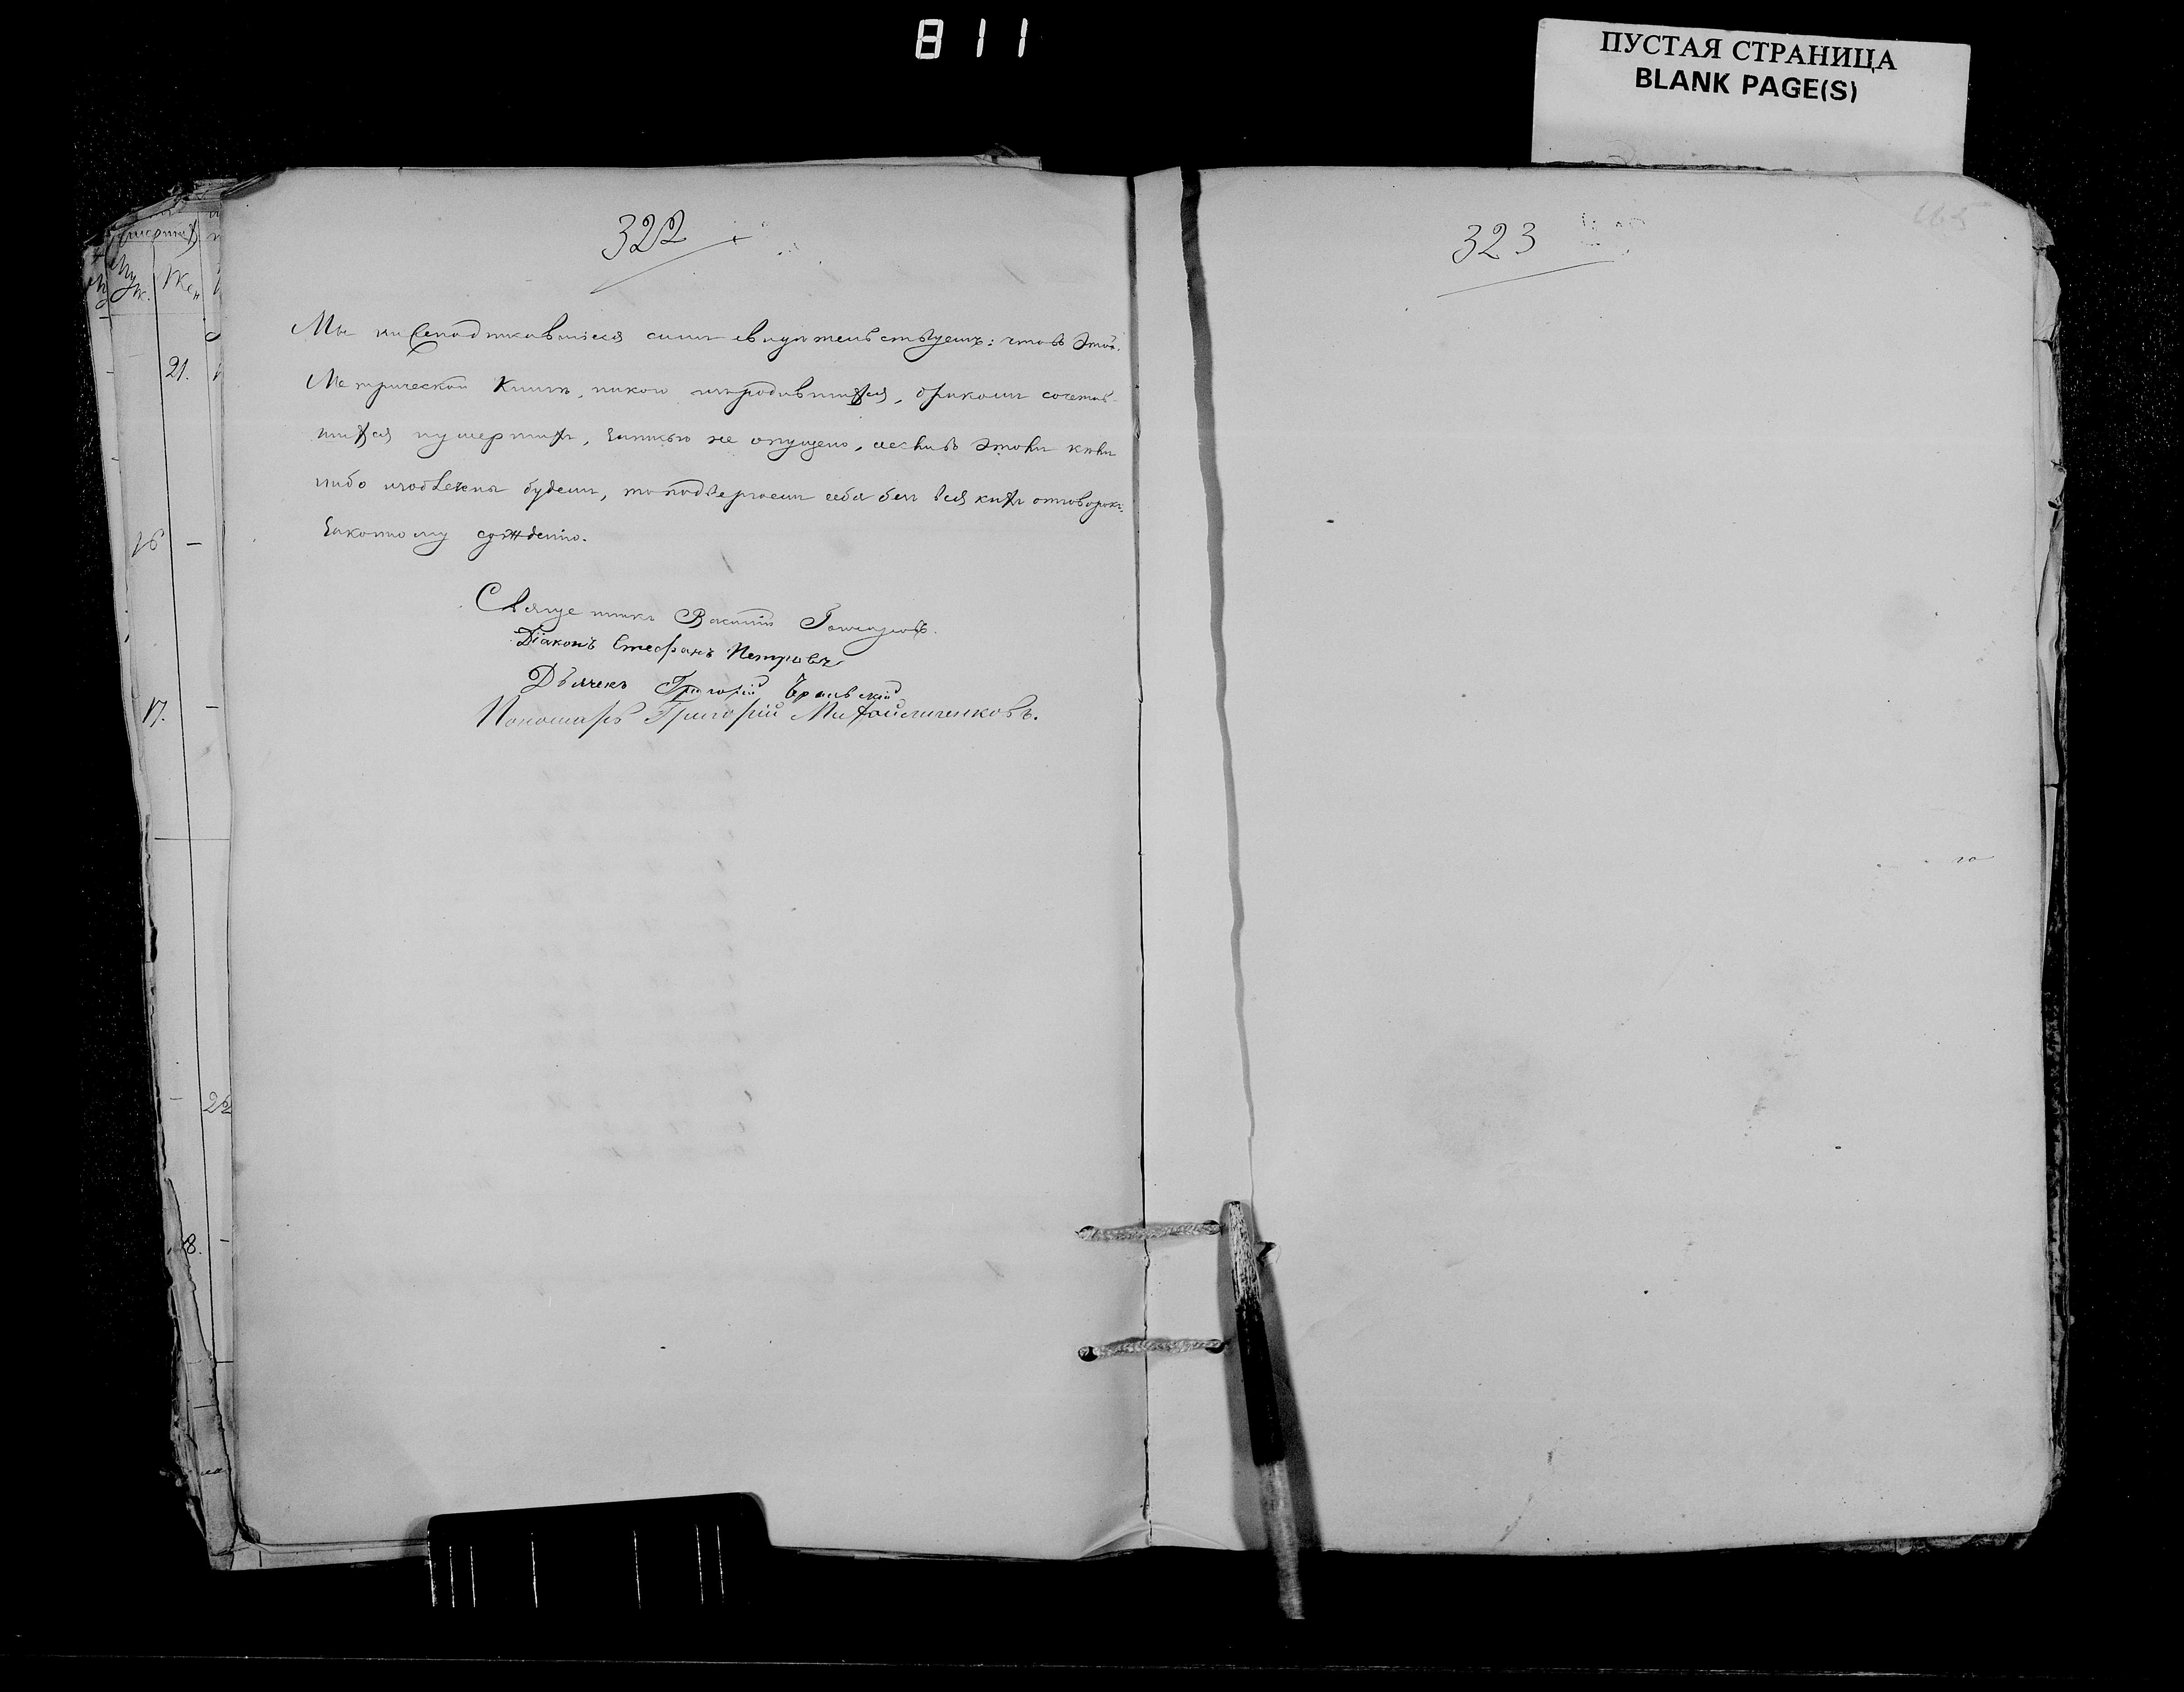 811
ПУСТАЯ СТРАНИЦА
BLANK PAGE(S)
Муж.
Жен
21.
16
17.
22
18.
322
Мы нижеподписавшіеся симъ свидѣтельствуемъ: что въ этой
Метрической Книгѣ, никого изъ родившихся, бракомъ сочетав-
шихся и умершихъ, записью не опущено, если въ этомъ кѣмъ
либо изобличены будемъ, то подвергаемъ себя безъ всякихъ отговорокъ
законному сужденію.
Священникъ Василій
Діаконъ Стефанъ Петровъ
Дьячекъ Григорій
Пономарь Григорій Михайличенковъ.
323